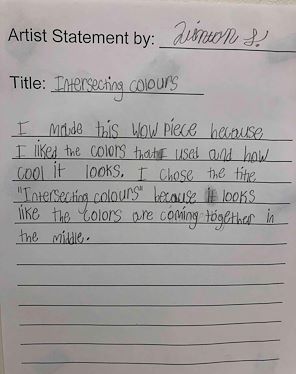 Artist Statement by: S.
Title: Intersecting colours
I made this wow piece because
I liked the colors that I used and how
cool it looks. I chose the title
"Intersecting colours" because it looks
like the colors are coming together in
the middle.